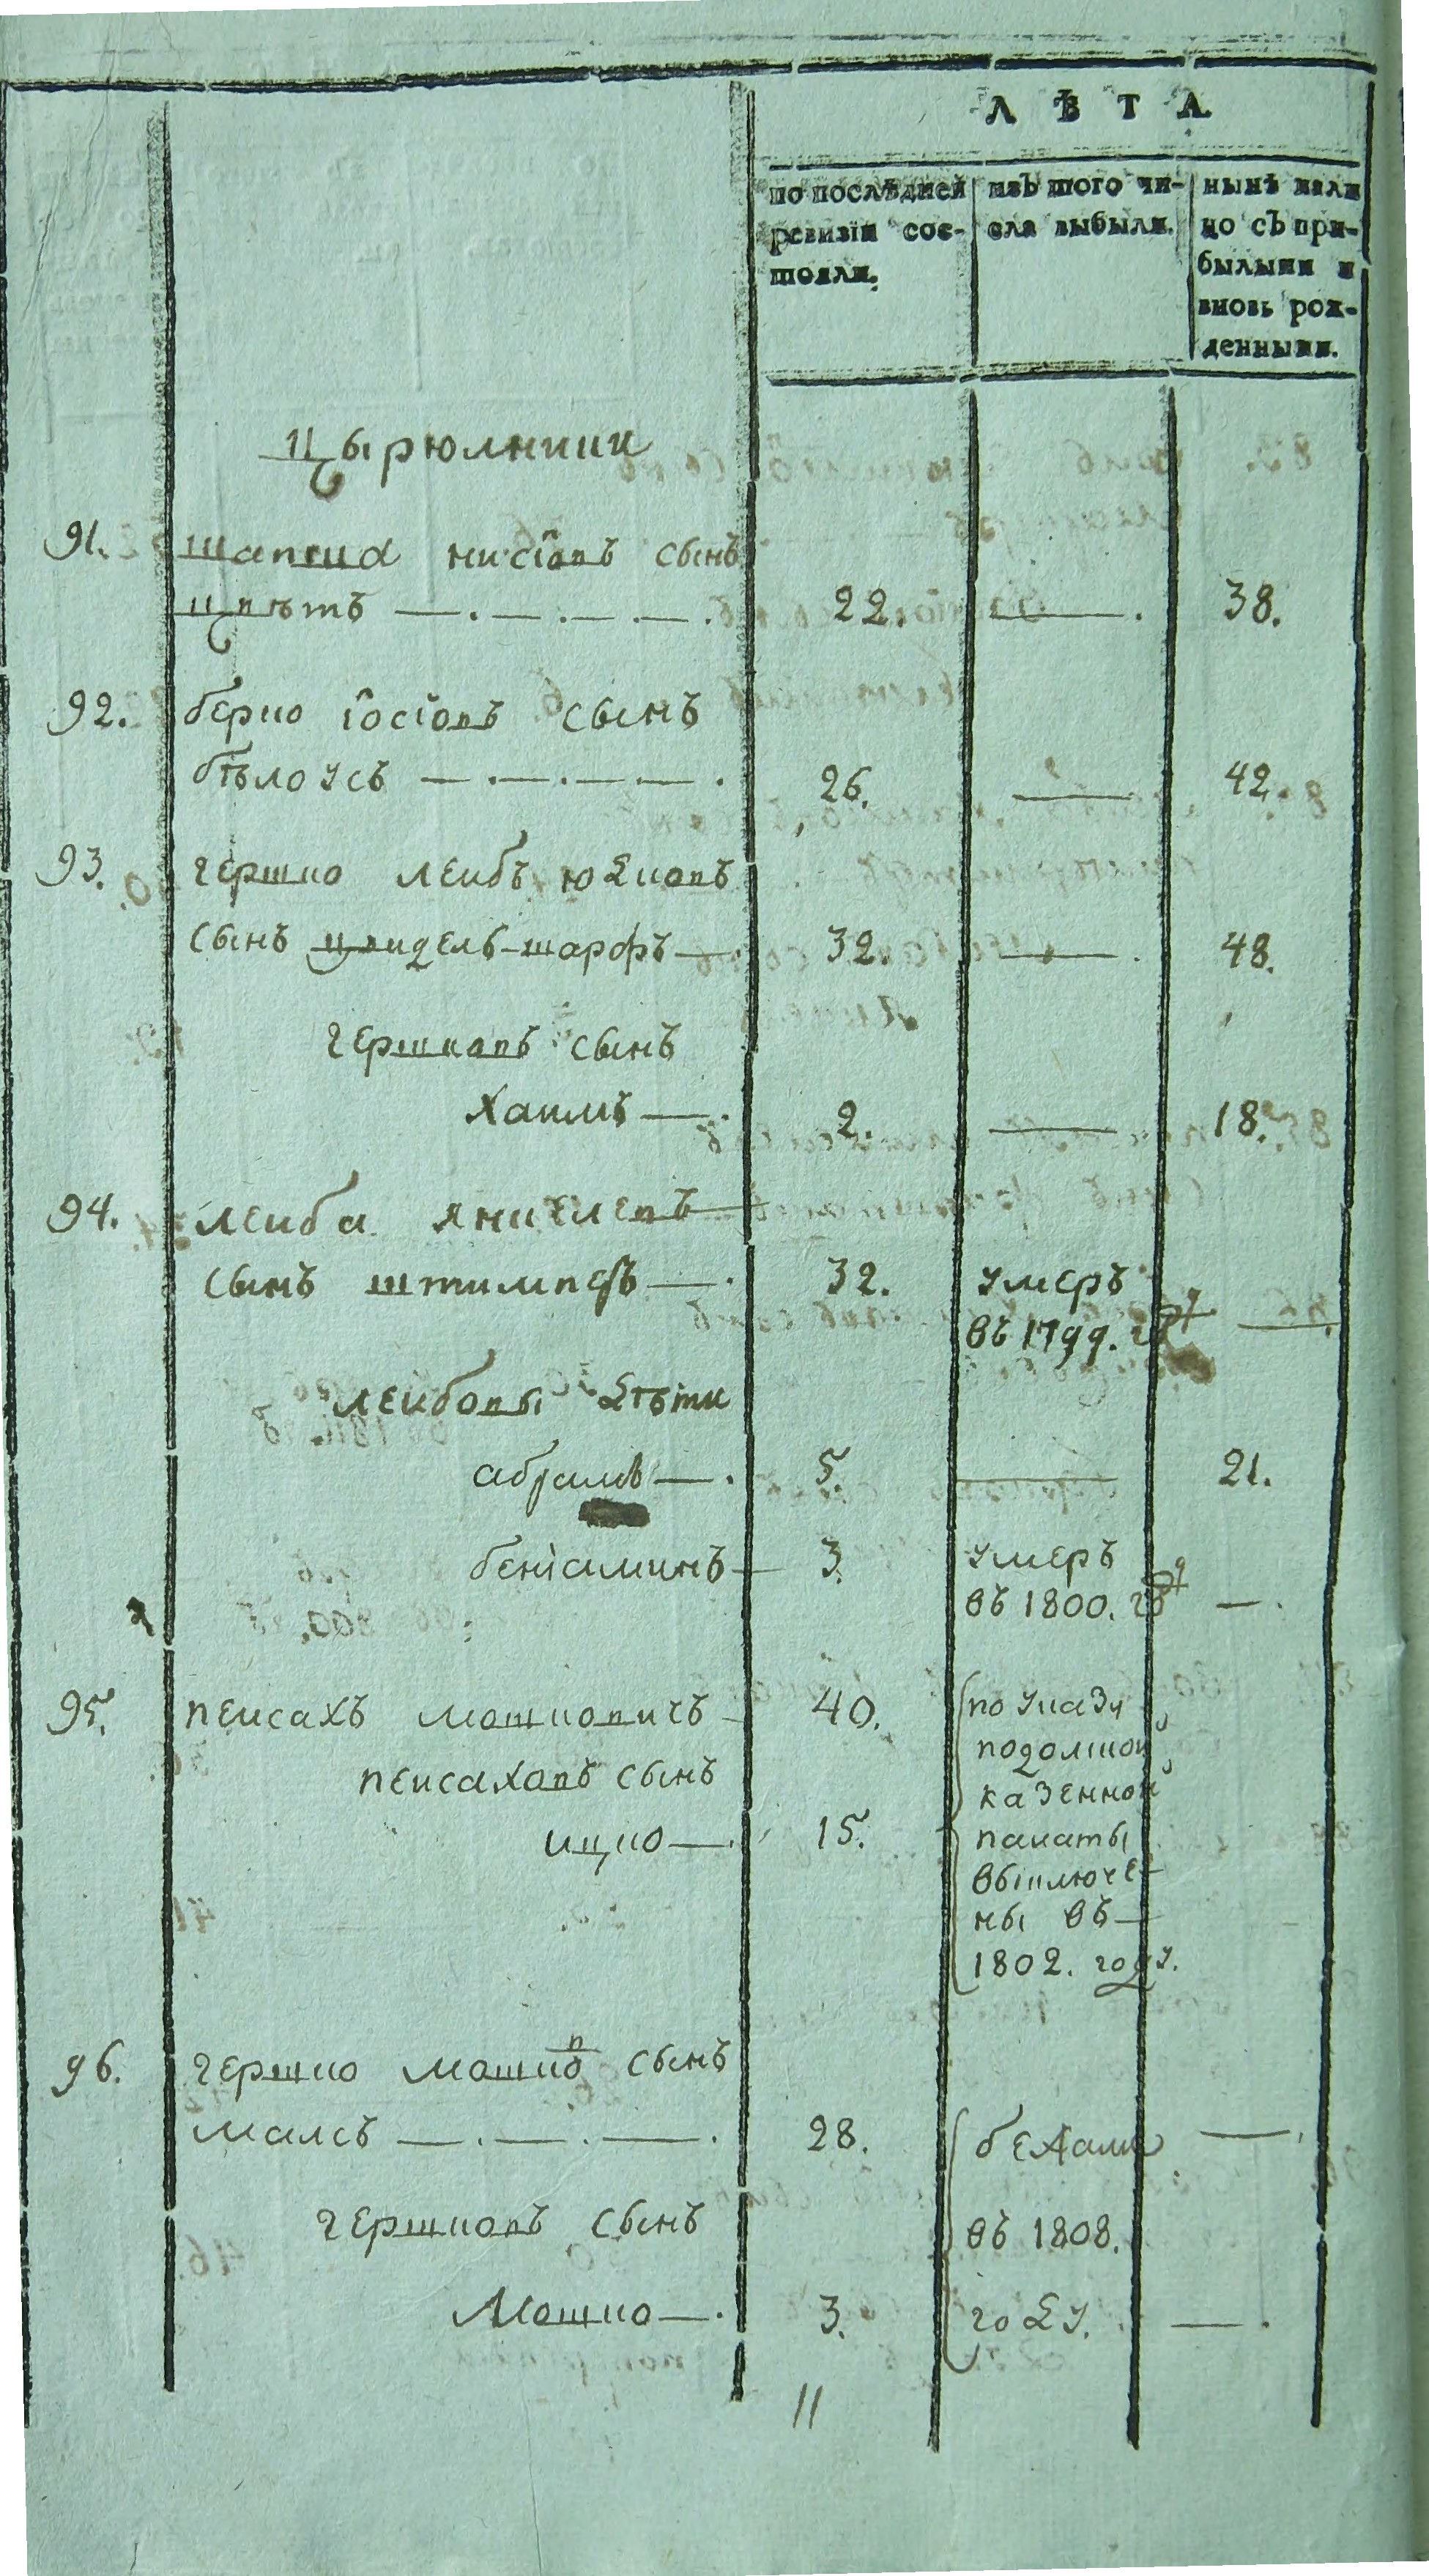 ЛѢТА
по послѣдней ревизіи состояли.
изъ того числа выбыли.
нынѣ на лицо съ прибылыми и вновь рожденными.
цырюлники
91. шапсиа нисіовъ сынъ
цвѣтъ — 22. — 38.
92. берко іосіовъ сынъ
бѣлоусъ — 26. — 42.
93. гершко леибъ юдковъ
сынъ цвидель-шарфъ — 32. — 48.
гершковъ сынъ
хаимъ — 2. — 18.
94. леиба янкелевъ
сынъ штимперъ — 32. умеръ
въ 1799. год —
леибовы дѣти
абрамъ — 5. — 21.
беніаминъ — 3. умеръ
въ 1800. год —.
95. пеисахъ мошковичъ 40. по указу
подолской
пеисаховъ сынъ
казенной
ицко — 15. палаты
выключе-
ны въ —
1802. году.
96. гершко мошковъ сынъ
малсъ — 28. бежали —
гершковъ сынъ въ 1808.
Мошко — 3. году. —.
11